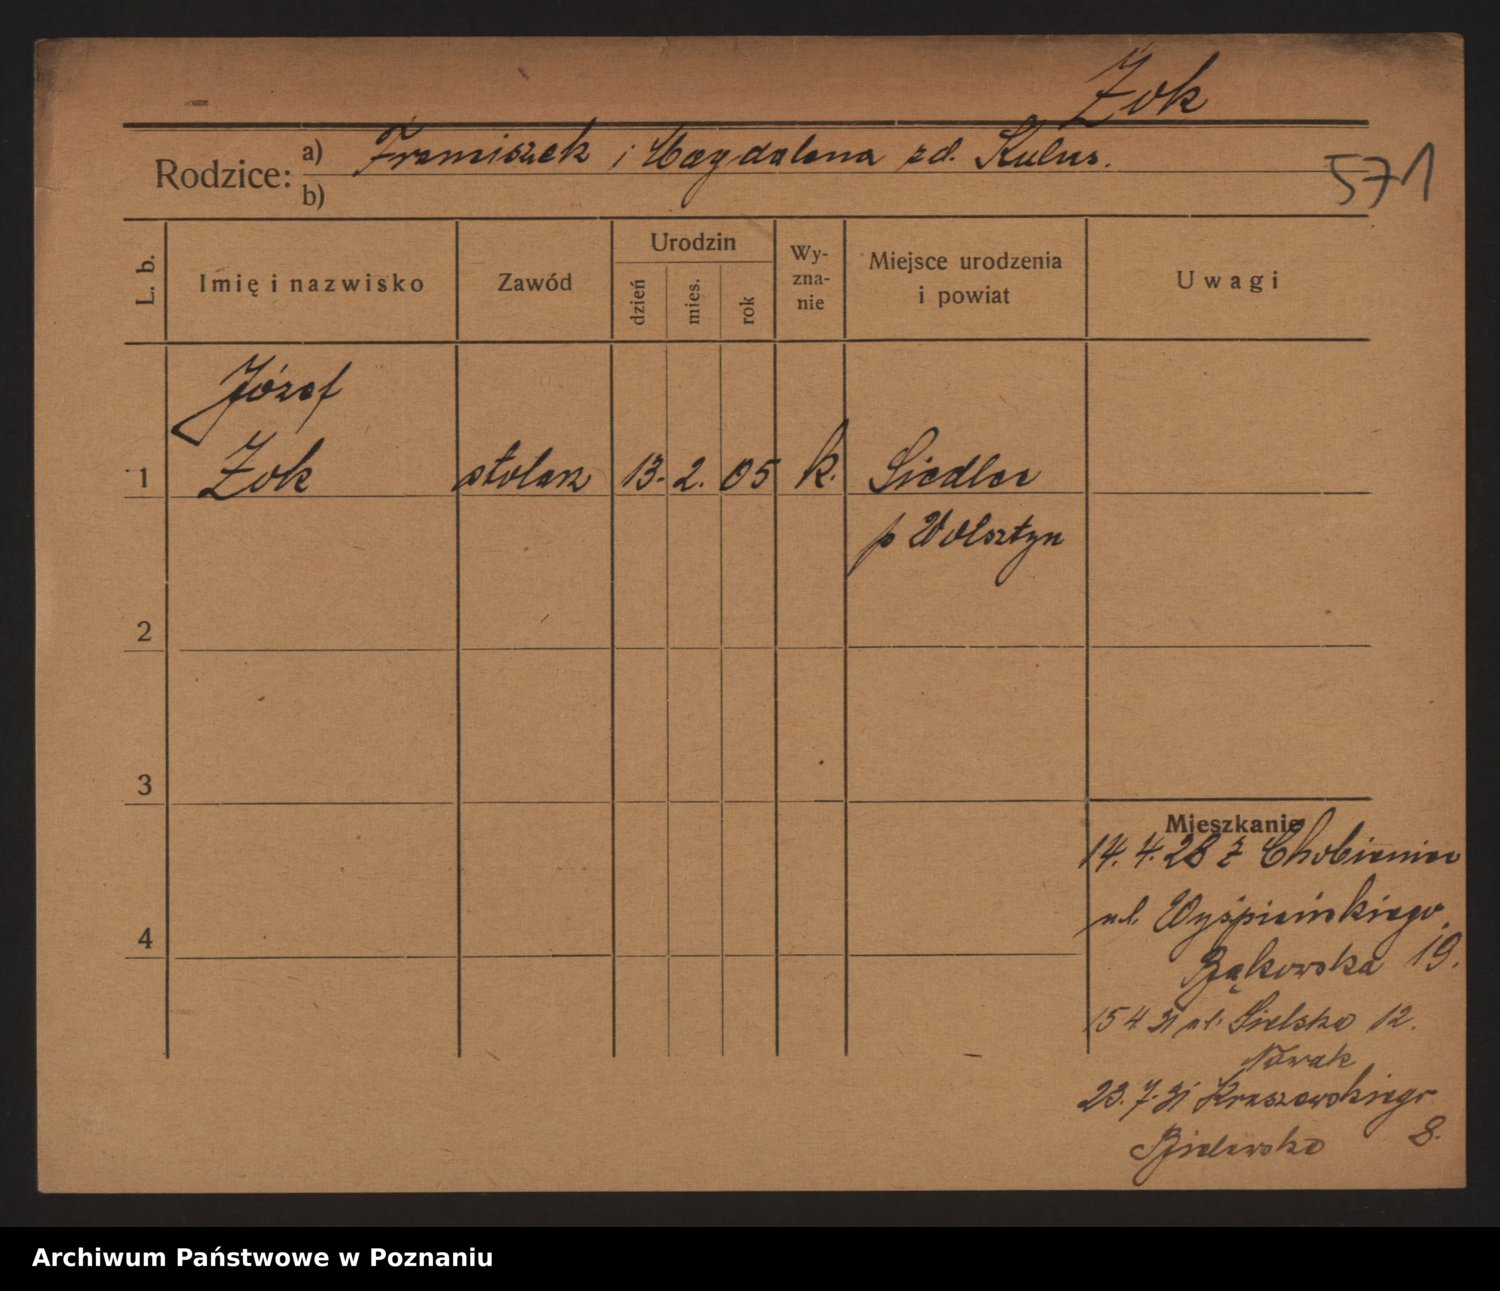 Żok
Rodzice: a) Franciszek i Magdalena zd. Kulus.
b)
571
L. b. Imię i nazwisko Zawód Urodzin dzień mies. rok Wy-zna-nie Miejsce urodzenia i powiat Uwagi
Józef
1 Żok stolarz 13. 2. 05 k. Siedlec
p Wolsztyn
2
3
Mieszkanie
14. 4. 28 z Chobienice
ul. Wyśpiańskiego
4
Bąkowska 19.
15 4 31 ul. Sielska 12.
Nowak
23. 7. 31 Kraszewskiego
Bielawska 8.
Archiwum Państwowe w Poznaniu